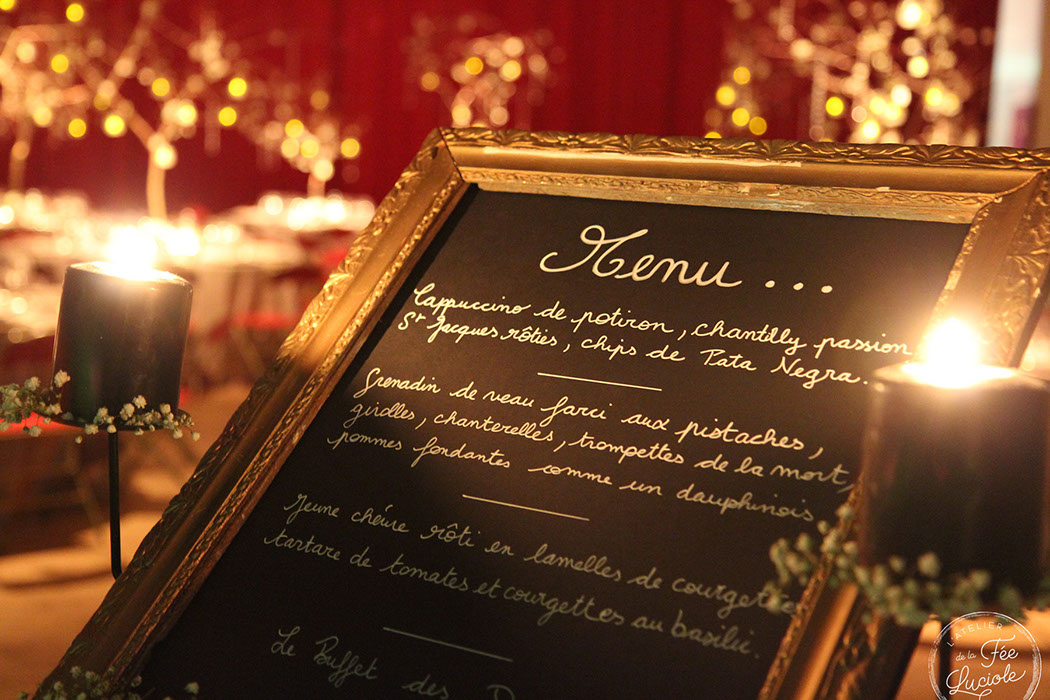 Menu ...
Cappuccino de potiron, chantilly passion
St Jacques rôties, chips de Pata Negra.
Grenadin de veau farci aux pistaches,
girolles, chanterelles, trompettes de la mort,
pommes fondantes comme un dauphinois
Jeune chèvre rôti en lamelles de courgettes
tartare de tomates et courgettes au basilic.
Le Buffet des
L'ATELIER
de la Fée
Luciole